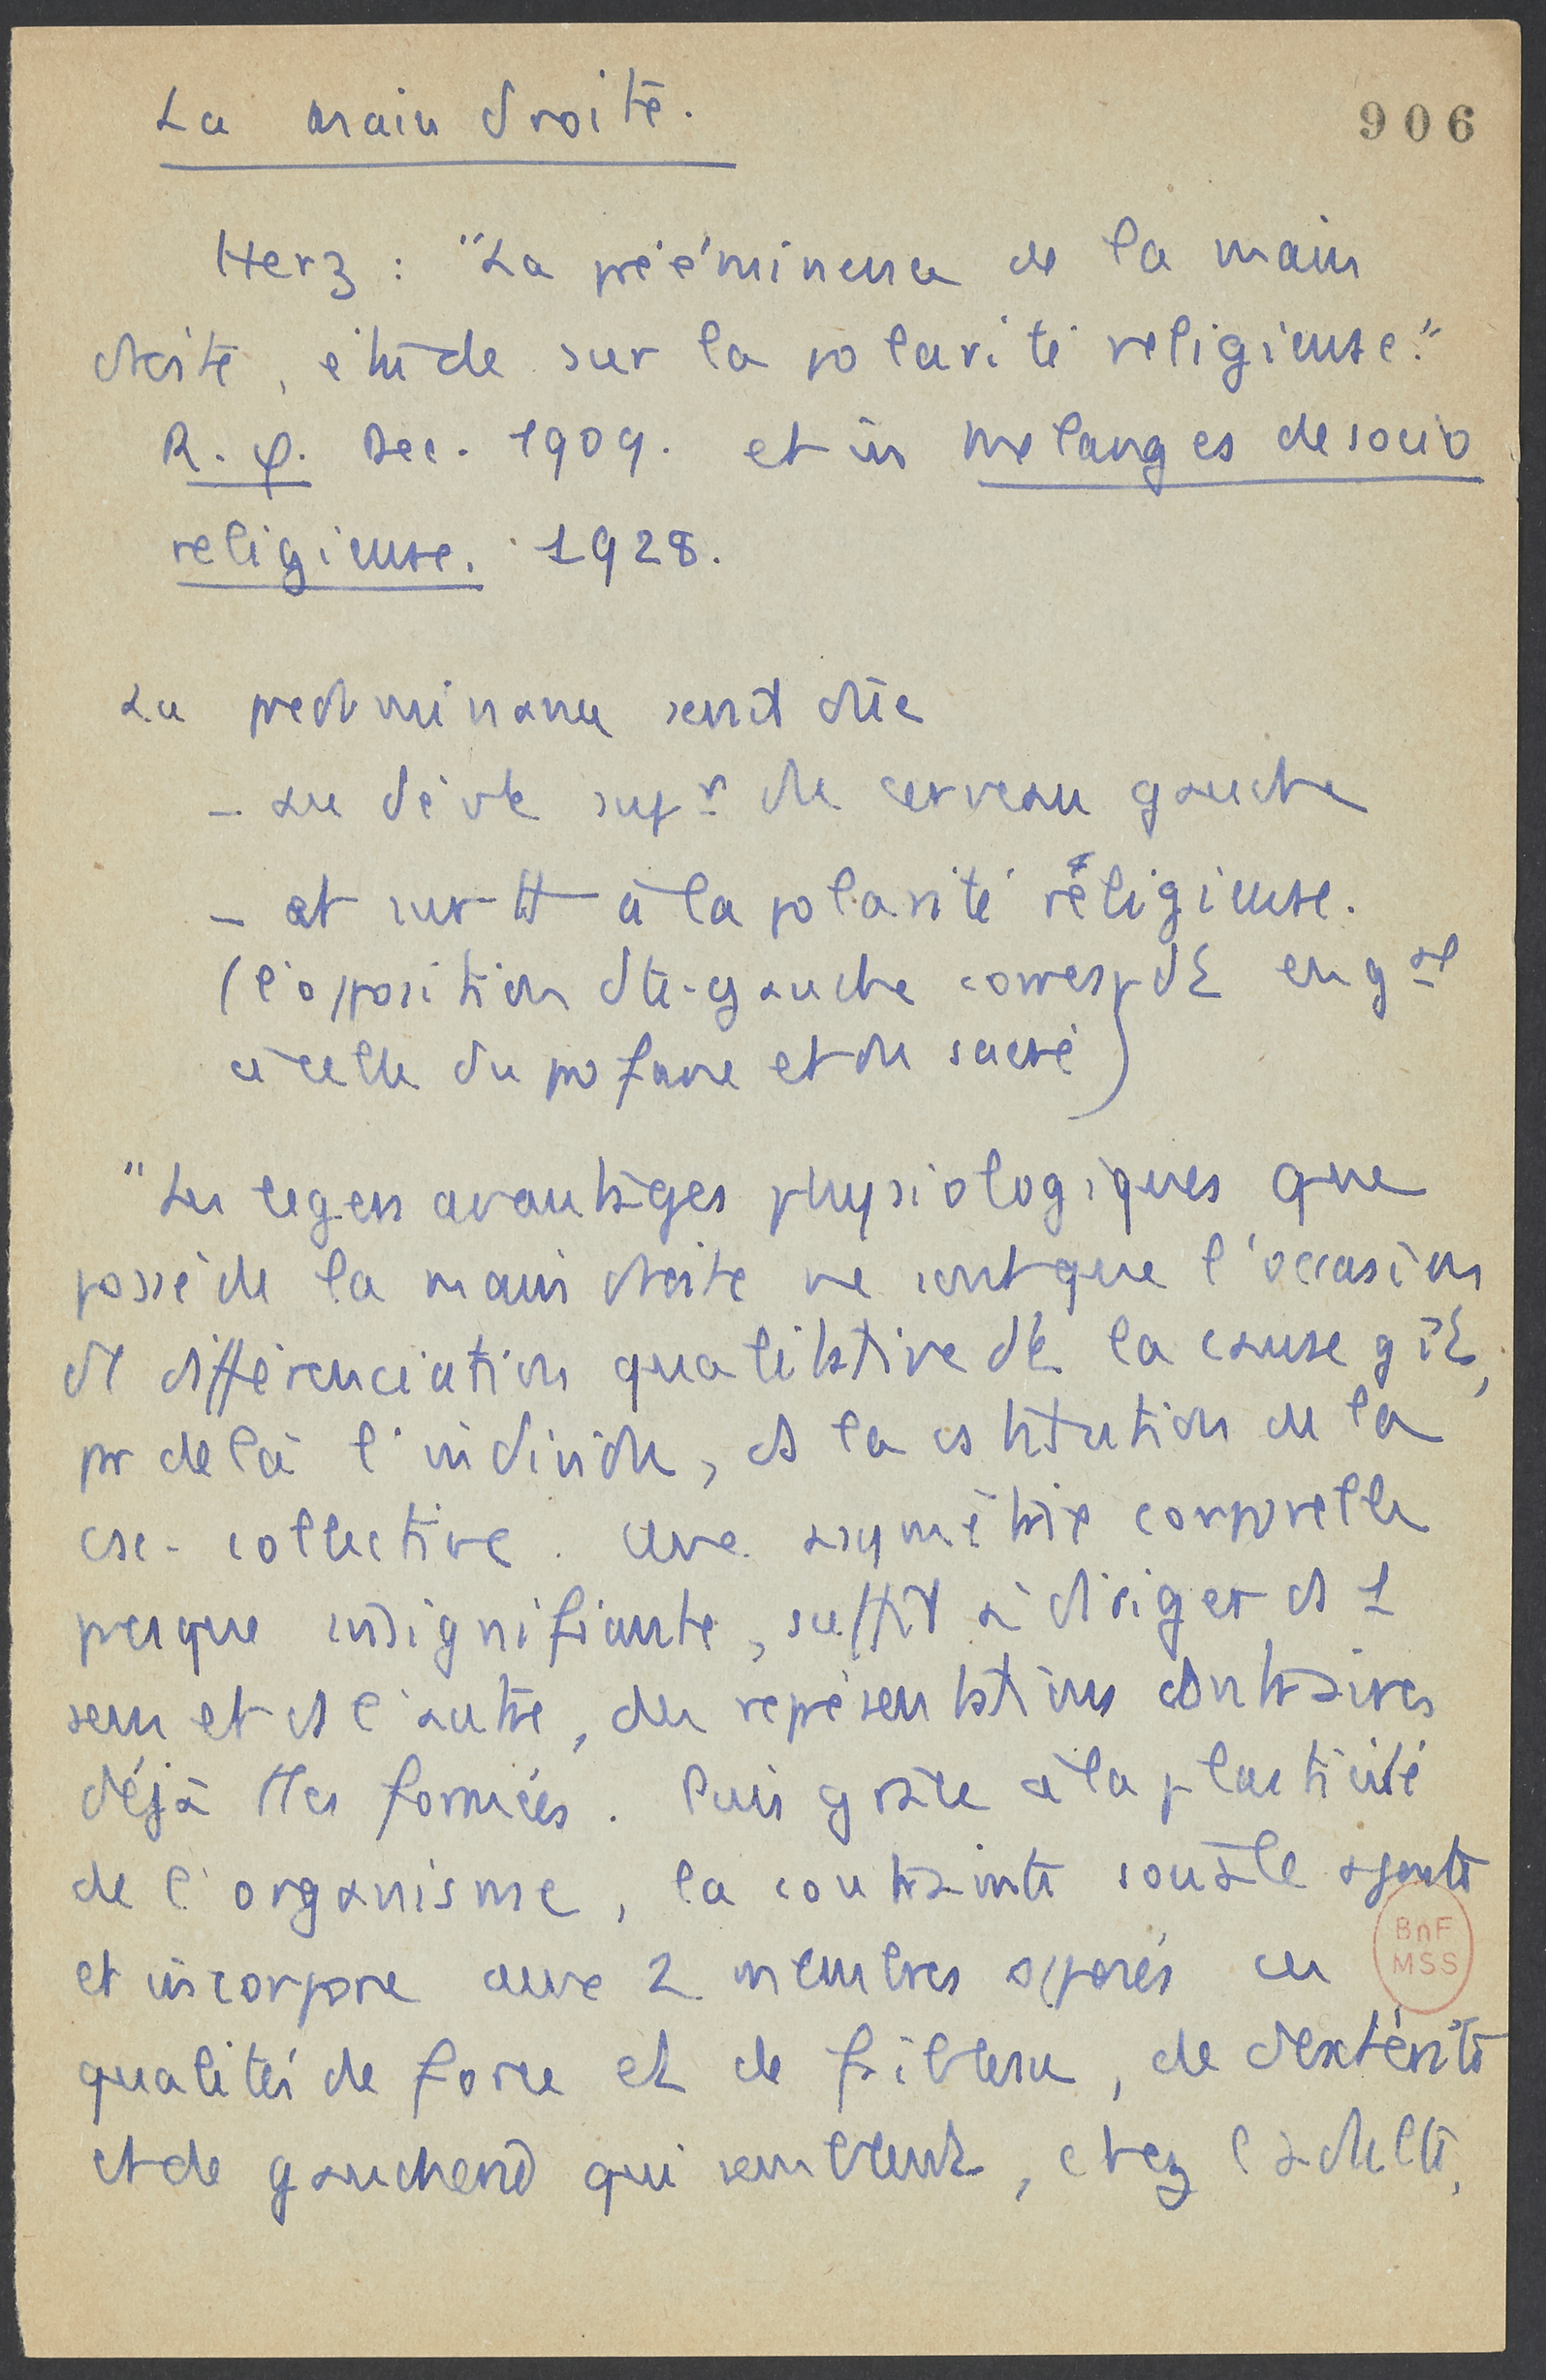 La main droite.
906
Herz : "La prééminence de la main
droite, étude sur la polarité religieuse."
R. φ. Dec. 1909. et in Melanges de socio
religieuse. 1928.
La predominance serait dûe
- au dévt supr du cerveau gauche
- et surtt à la polarité religieuse.
(l'opposition dte-gauche correspdt en gal
à celle du profane et du sacré)
"Les legers avantages physiologiques que
possède la main droite ne sont que l'occasion
de différenciation qualitative dt la cause gît,
par delà l'individu, ds la cstitution de la
csc. collective. Une asymétrie corporelle
presque insignifiante, suffit à diriger ds 1
sens et ds l'autre, des représentations contraires
déjà ttes formées. Puis grâce à la plasticité
de l'organisme, la contrainte sociale ajoute
et incorpore aux 2 membres opposés ces
qualités de force et de faiblesse, de dextérité
et de gaucherie qui semblent, chez l'adulte,
BnF
MSS